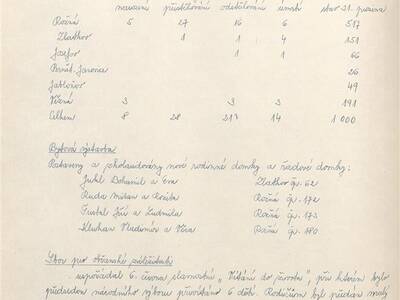 narození přistěhování odstěhování úmrtí stav 31. prosince
Rožná 5 27 16 6 517
Zlatkov 1 1 4 151
Josefov 1 1 66
26
Jabloňov 49
Věžná 3 3 3 191
Celkem 8 28 213 14 1 000
Bytová výstavba
Postaveny a zkolaudovány nové rodinné domky a řadové domky:
Bohumil a Eva Zlatkov čp. 62
Ruda Milan a Rožná čp. 172
Jiří a Ludmila Rožná čp. 173
Vladimír a Věra Rožná čp. 180
Sbor pro občanské záležitosti
uspořádal 6. června slavnostní „Vítání do života", při kterém bylo
předsedou národního výboru přivítáno 6 dětí. Rodičům byl předán